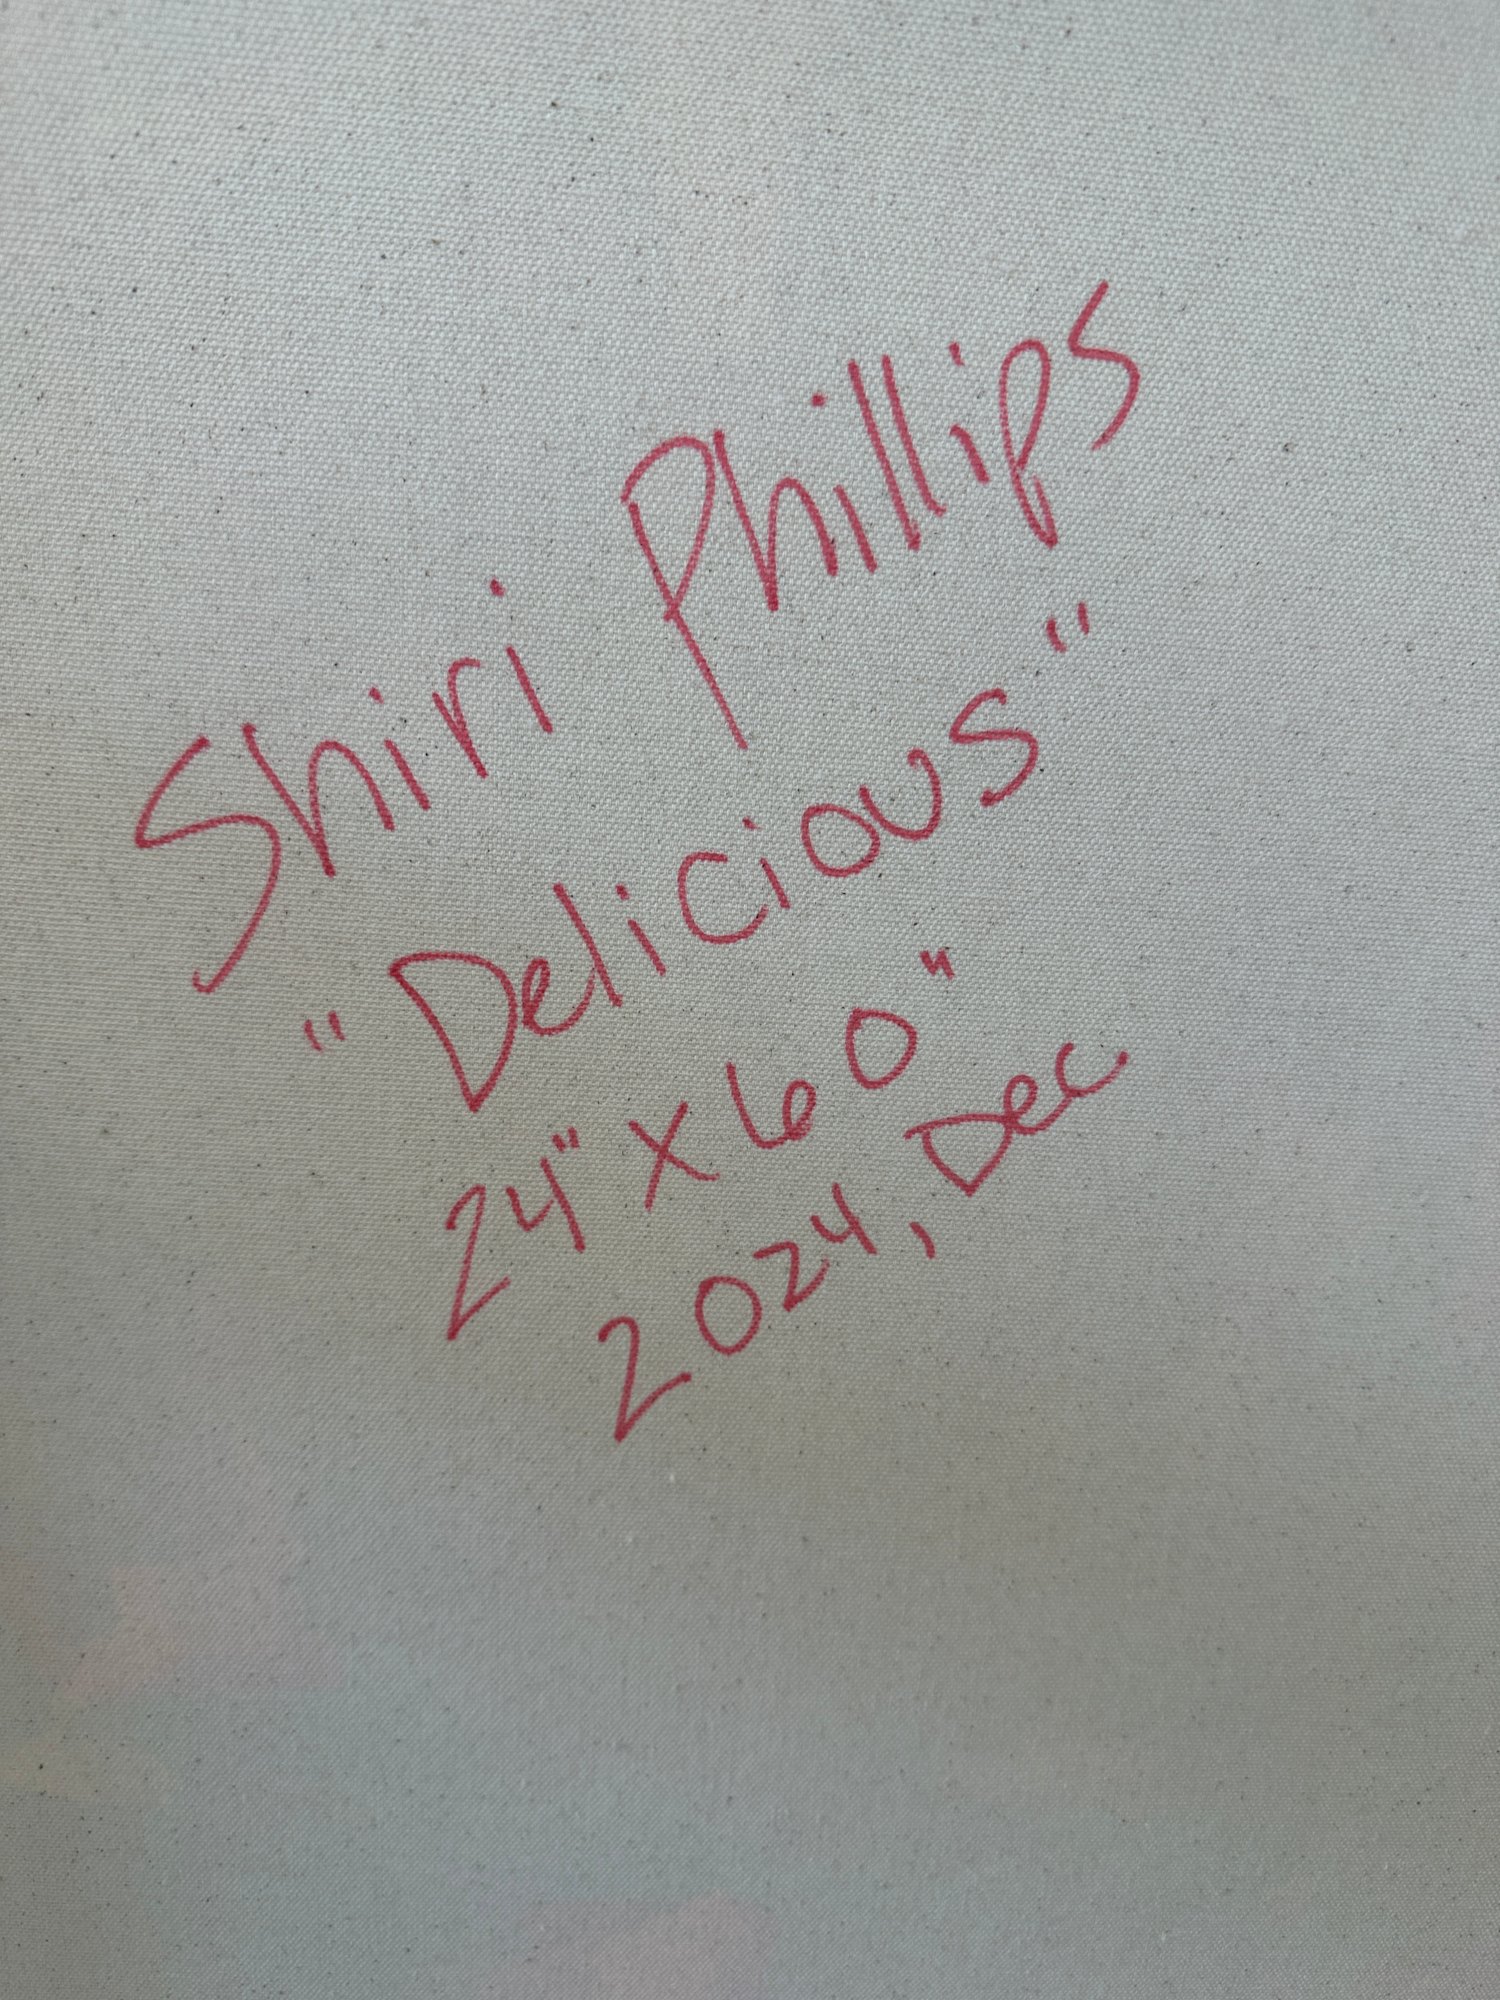 Shiri Phillips
"Delicious"
24" x 60"
2024, Dec